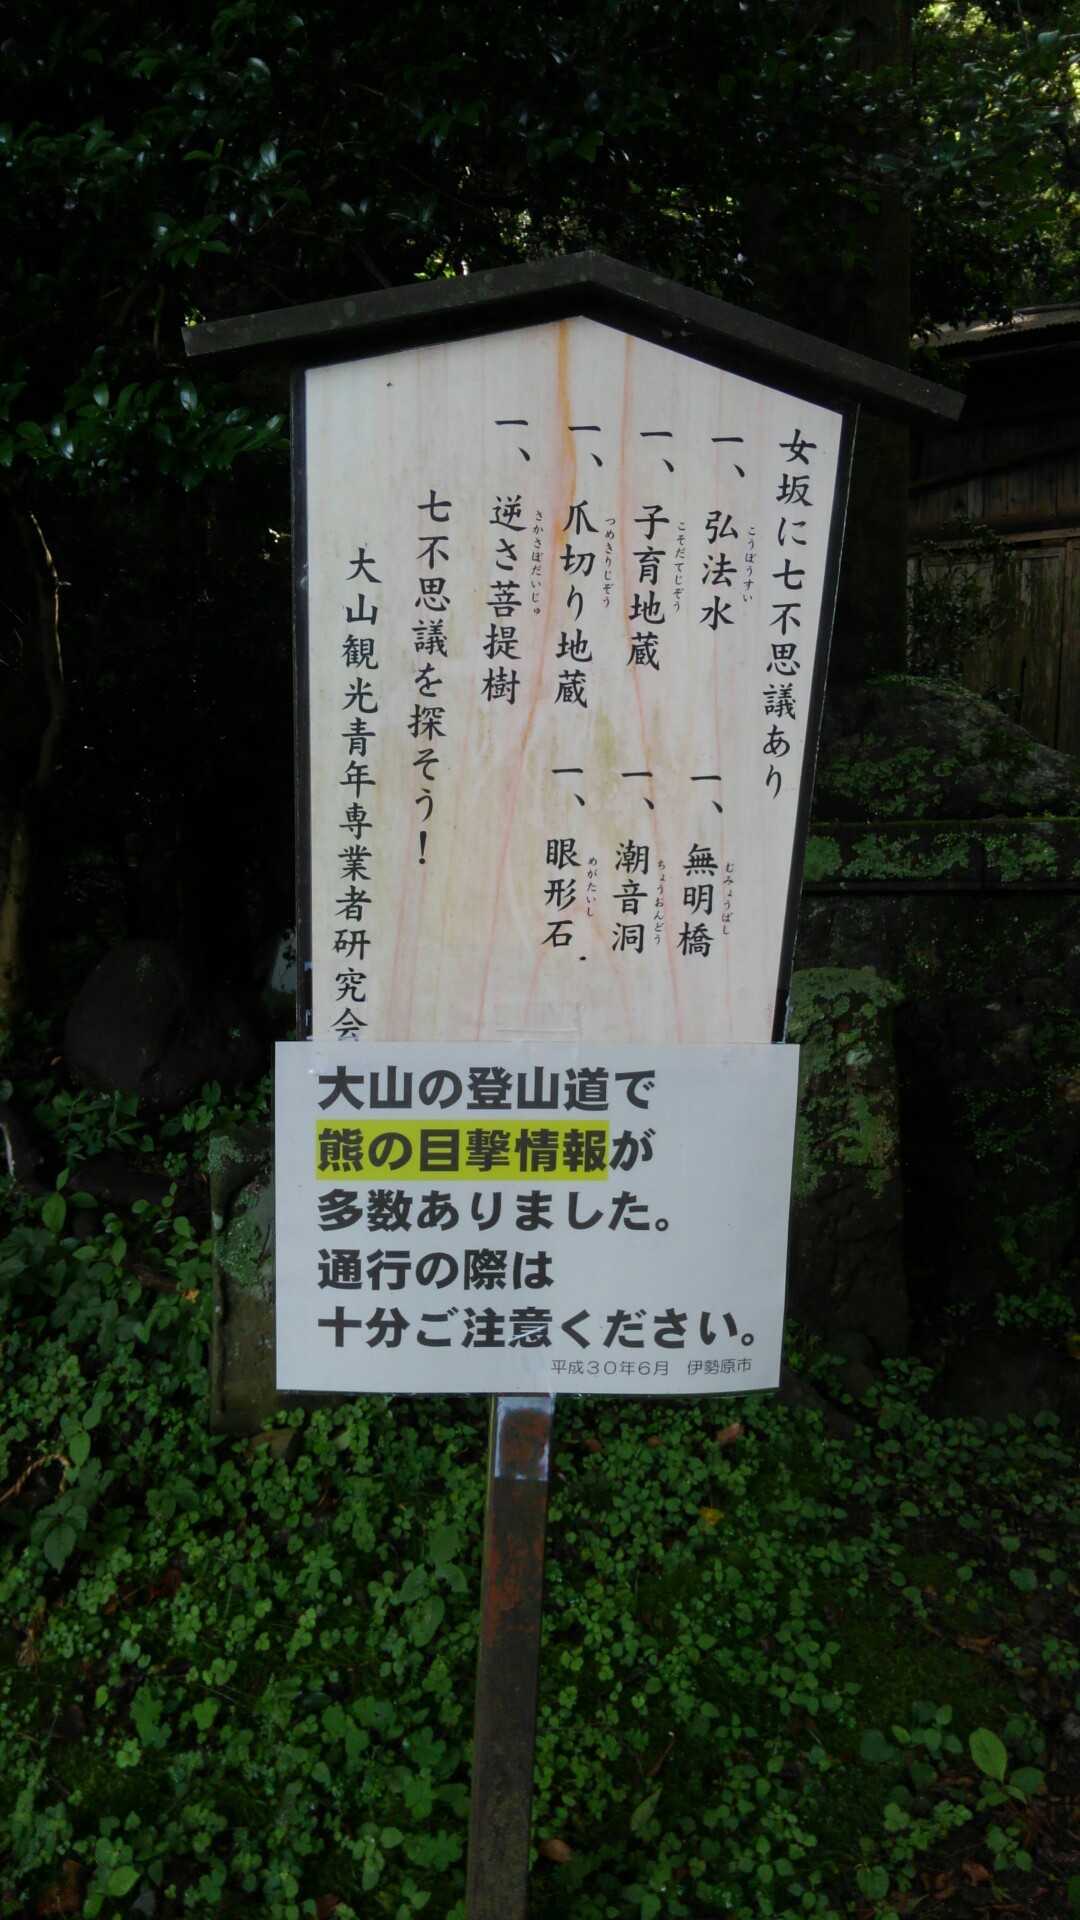 女坂に七不思議あり
一、弘法水
こうぼうすい
一、子育地蔵
こそだてじぞう
一、爪切り地蔵
つめきりじぞう
一、逆さ菩提樹
さかさぼだいじゅ
一、無明橋
むみょうばし
一、潮音洞
ちょうおんどう
一、眼形石
めがたいし
七不思議を探そう！
大山観光青年専業者研究会
大山の登山道で
熊の目撃情報が
多数ありました。
通行の際は
十分ご注意ください。
平成30年6月　伊勢原市